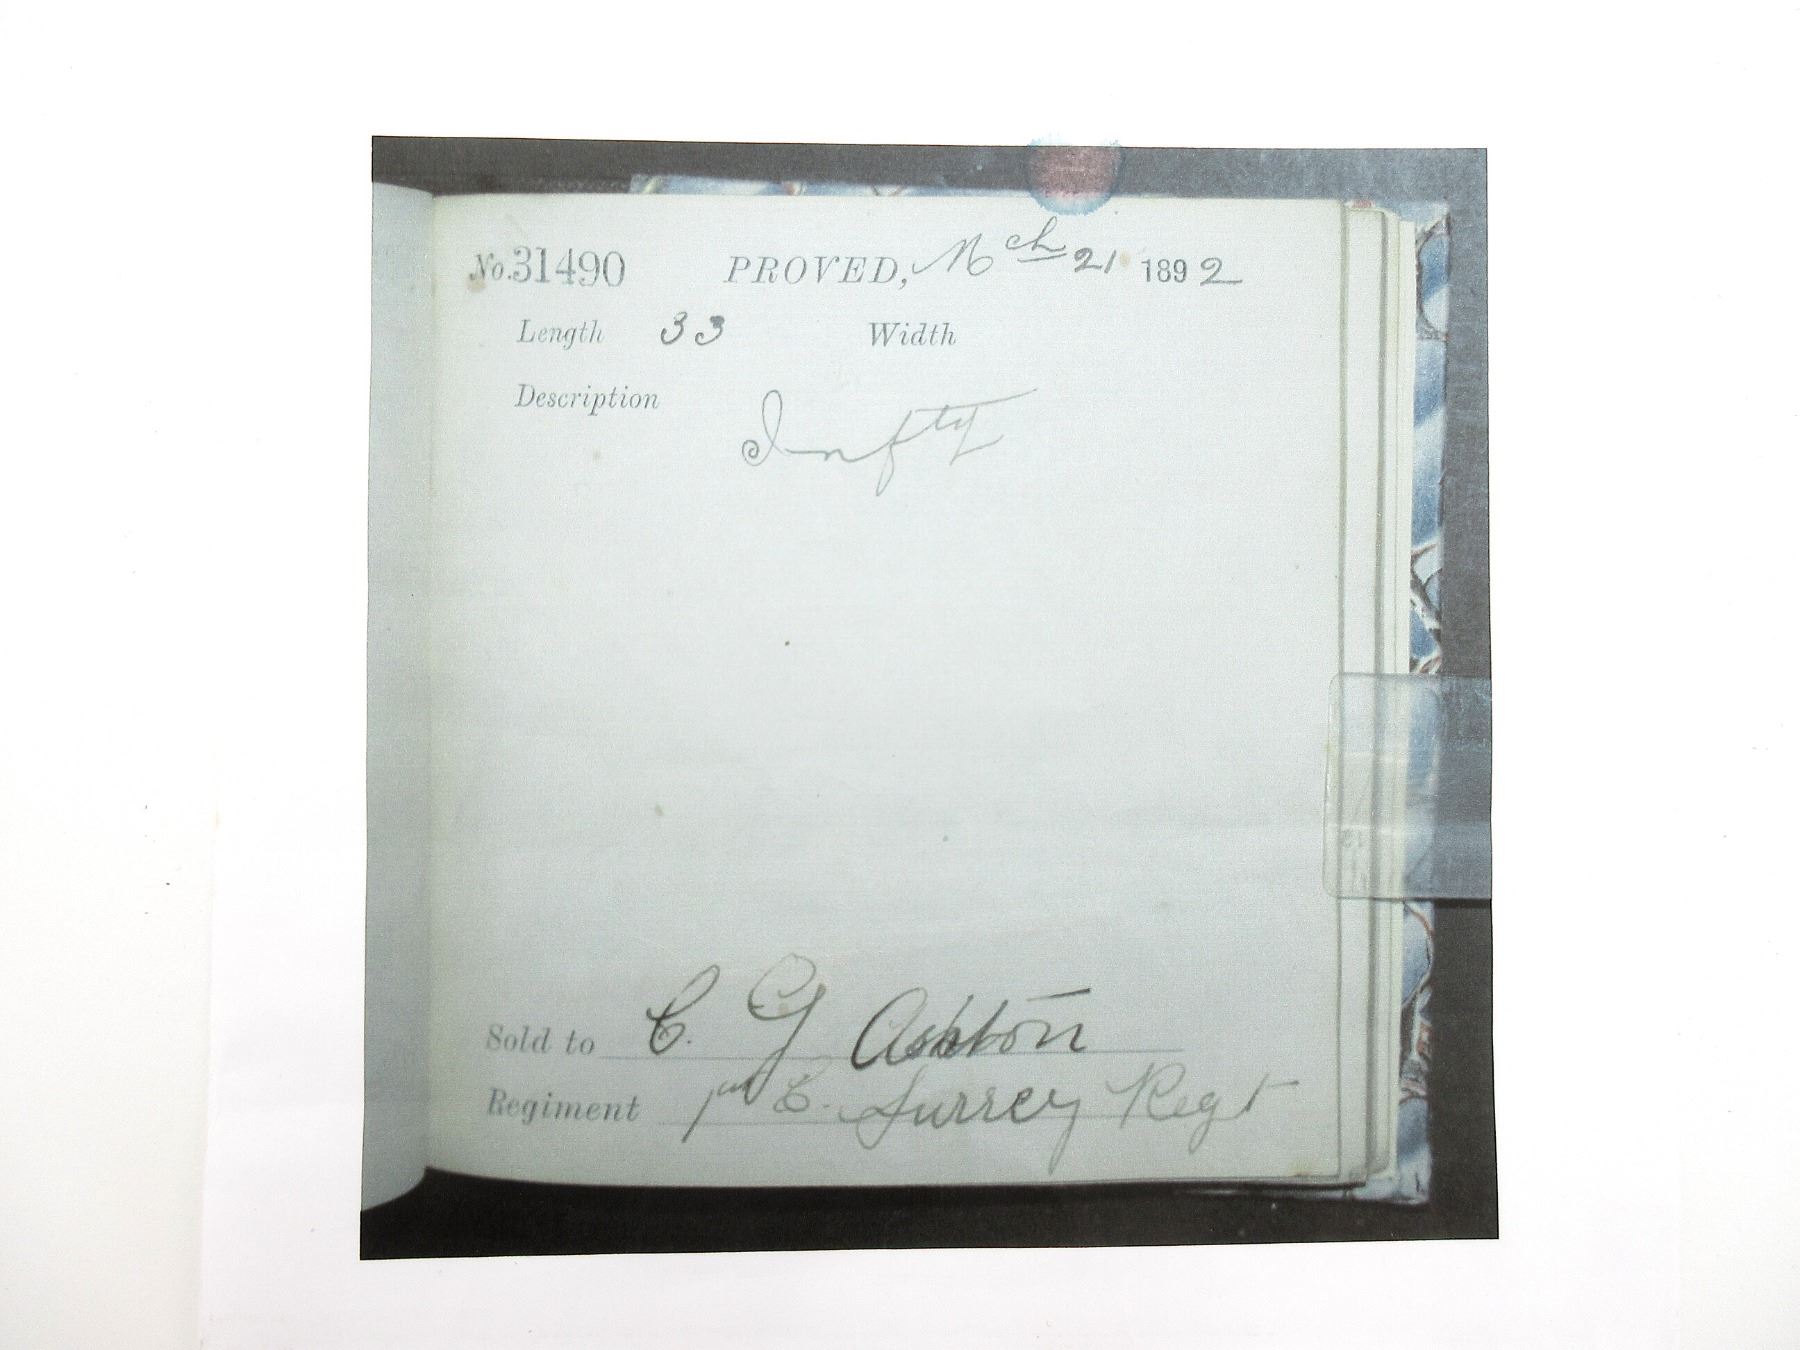 No. 31490 PROVED, Mch 21 1892
Length 33 Width
Description
Infty
Sold to C. G Ashton
Regiment 1st E. Surrey Regt